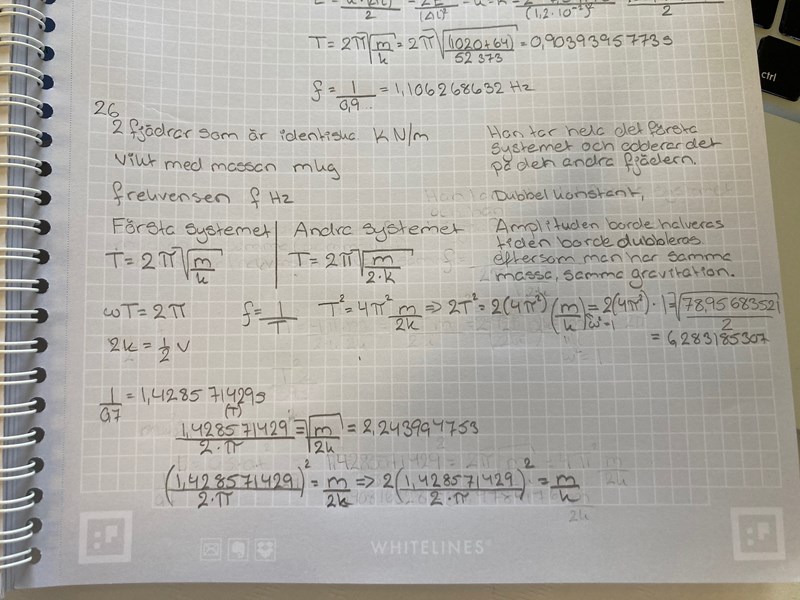 T = 2π√(m/k) = 2π√((1020+64)/52373) = 0,903939577 3 s
f = 1/0,9.. = 1,106268632 Hz
26
2 fjädrar som är identiska k N/m
Vikt med massan m kg
frekvensen f Hz
Han tar hela det första
systemet och adderar det
på den andra fjädern.
Dubbel konstant,
Amplituden borde halveras
tiden borde dubbleras
eftersom man har samma
massa, samma gravitation.
Första systemet | Andra systemet
T = 2π√(m/k) | T = 2π√(m/(2·k))
ωT = 2π f = 1/T T² = 4π² m/2k => 2T² = 2(4π²)(m/k) = 2(4π²)·1 = √78,9568352/2
2k = 1/2 v
= 6,283185307
1/0,7 = 1,428571429 s
(T)
1,428571429/(2·π) = √(m/2k) = 2,243994753
(1,428571429/(2·π))² = m/2k => 2(1,428571429/(2·π))² = m/k
2k
WHITELINES®
ctrl